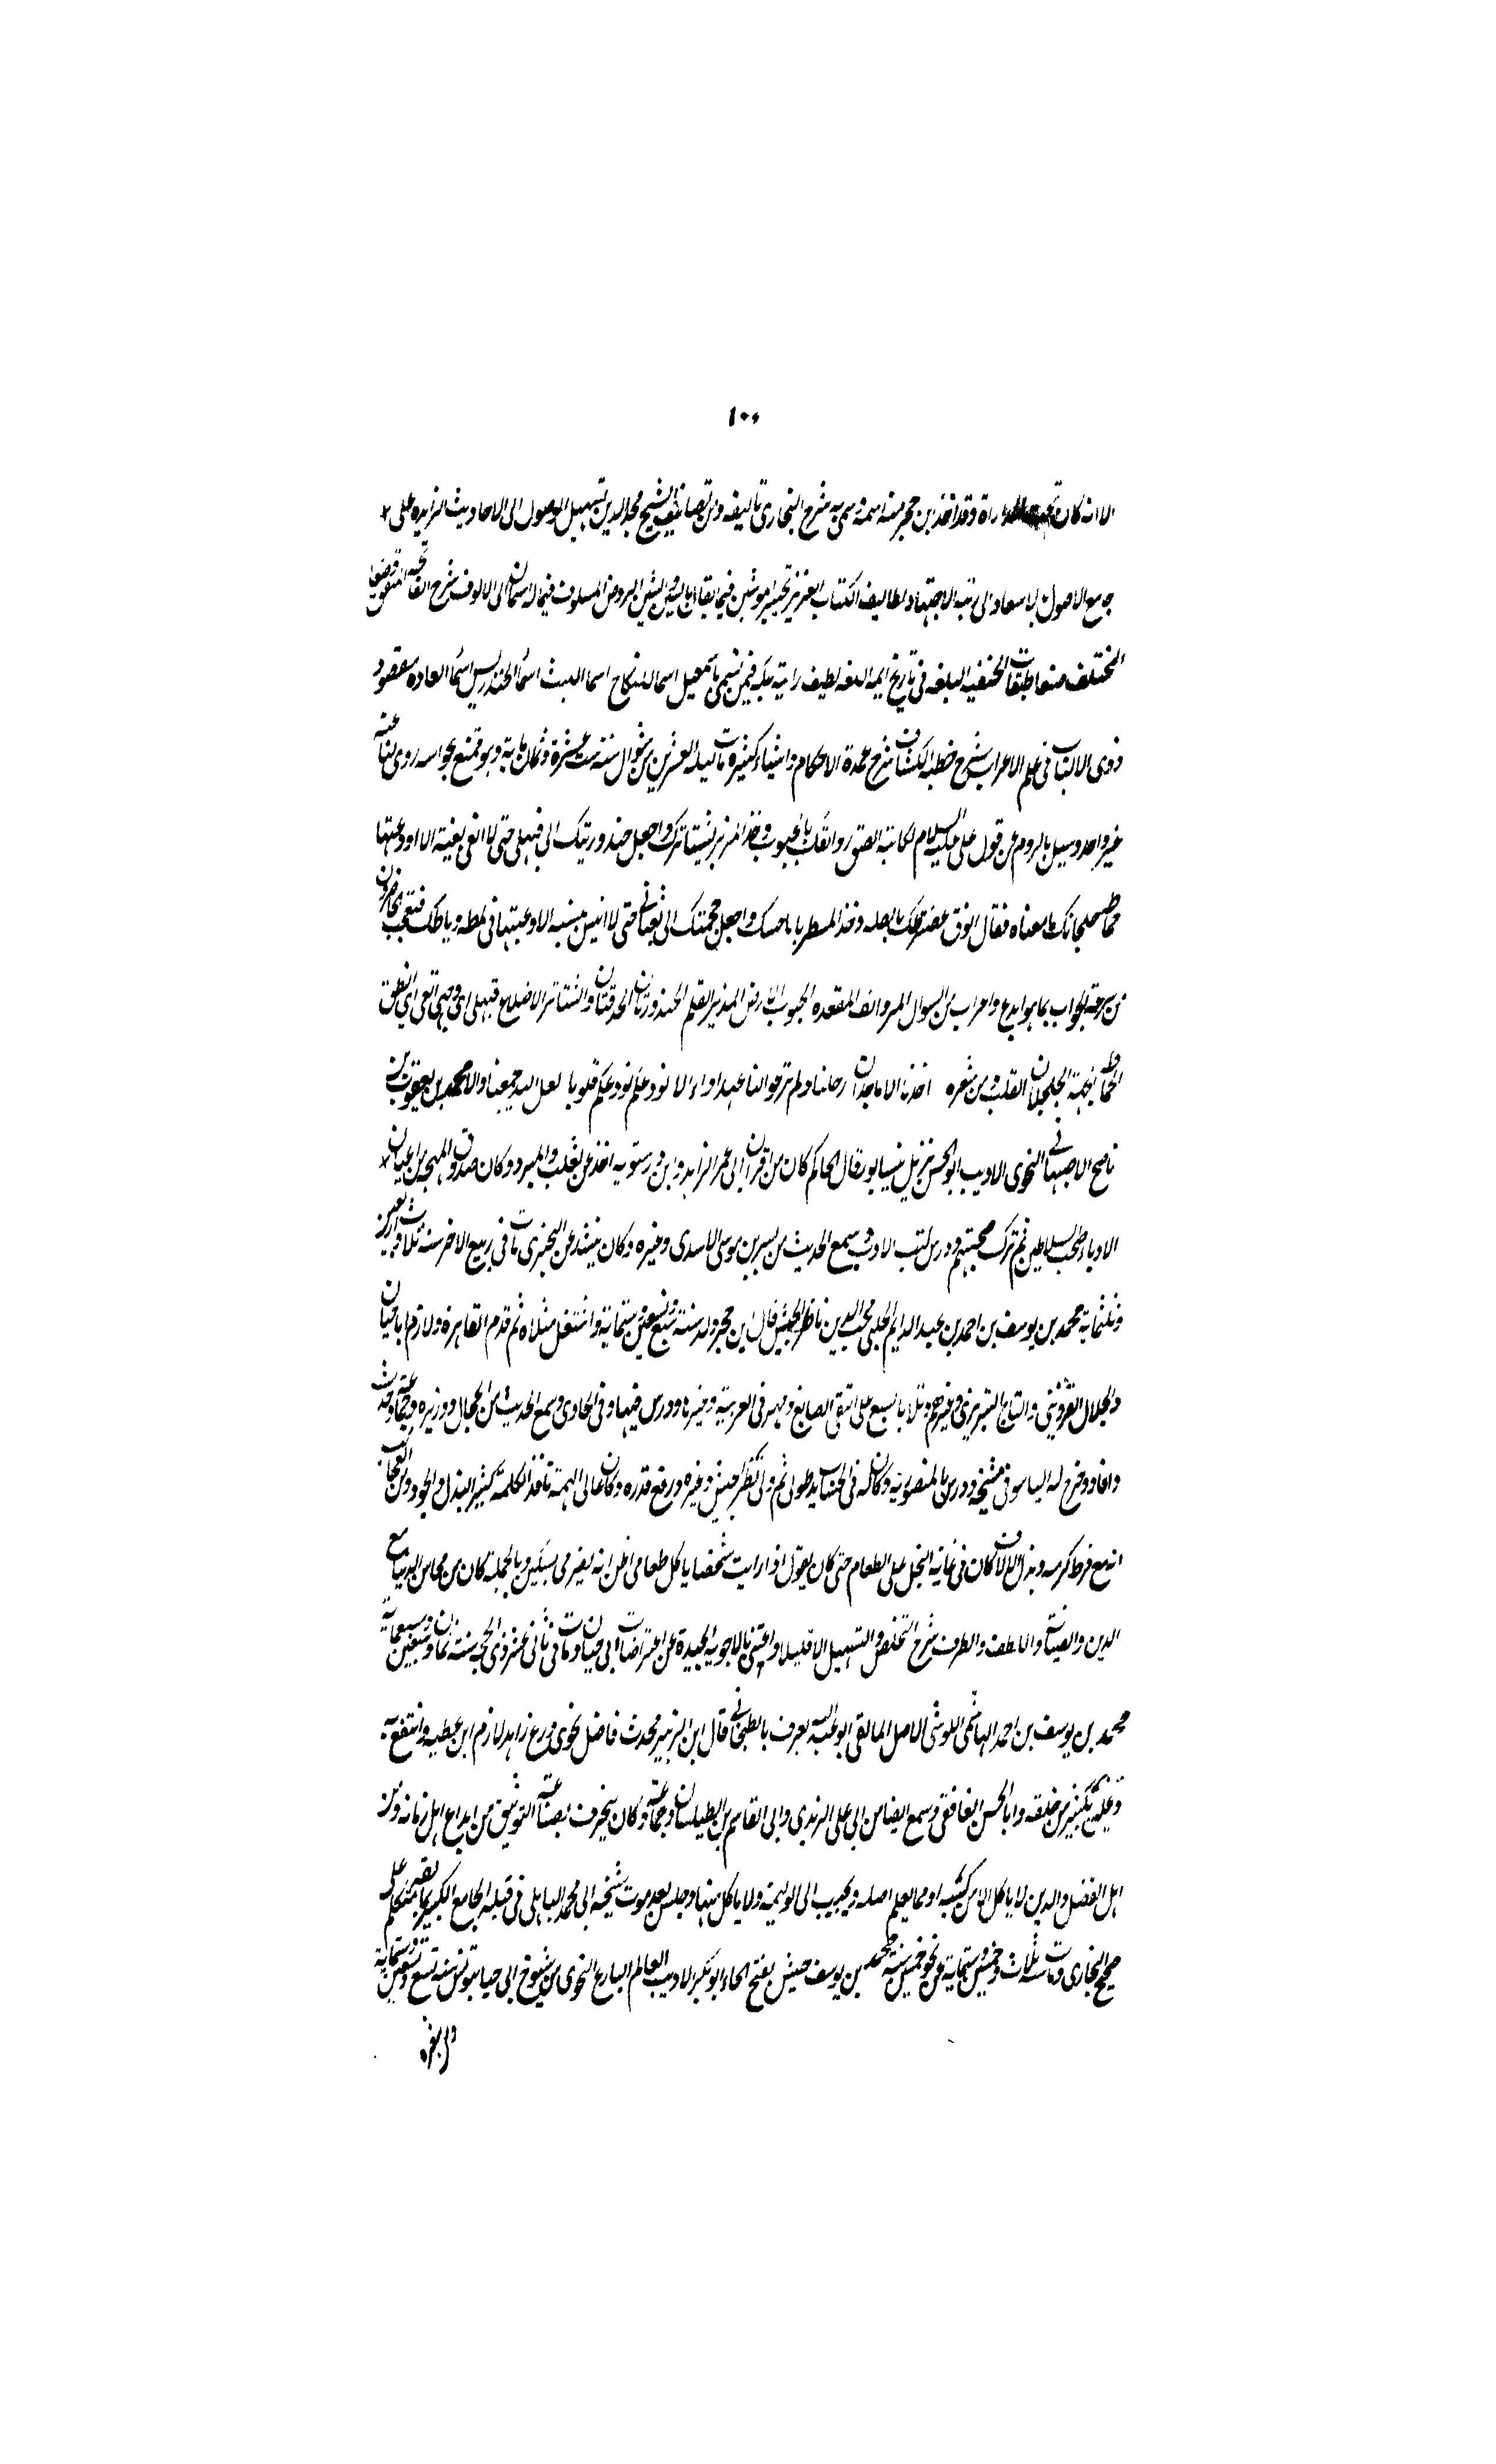 ١٠٠
الا انه كان يحب المداراة وقد اخذ ابن حجر منه اسمه وسمى به شرح البخارى تاليفه ومن تصانيف الشيخ مجد الدين تسهيل الوصول الى الاحاديث الزايده على
جامع الاصول الاسعاد الى رتبة الاجتهاد لطايف الكتاب العزيز تحبير الموشين فيما يقال بالسين والشين الروض المسلوف فيما له اسمان الى الالوف شرح الفاتحه المتفق وضعا
المختلف صنعا طبقات الحنفيه البلغه فى تاريخ ايمه اللغه لطيف رايته بمكه فيمن تسمى باسمعيل اسما النكاح اسما الليث اسما الخندريس اسما الغاده مقصود
ذوى الالباب فى علم الاعراب شرح خطبة الكشاف شرح عمدة الاحكام واشياء كثيره مات ليله العشرين من شوال سنة ست عشرة وثمان ماية وهو ممتع بحواسه روى لنا عنه
غير واحد وسيل بالروم عن قول على عليه السلام لكاتبه الصق روانفك بالجبوب وخذ المزبر بشناترك واجعل حندورتيك الى قيهلى حتى لا انغى نغية الا اودعتها
حماطة جلجلانك ما معناه فقال الزق عضرطك بالصله وخذ المسطر باباخسك واجعل جحمتك الى ثعبانى حتى لا انبس نبسه الا وعيتها فى لمظه رباطك فتعجب الحاضرون
من سرعة الجواب بما هو ابدع واغرب من السوال الروانف المقعده الجبوب الارض المزبر القلم الحندورتان الحدقتان والشناتر الاصابع قيهلى اى وجهى انغى اى انطق
الحماطة الجبة الجلجلان القلب ومن شعره اخلانا الاماجد ان رحلنا ولم ترعوا لنا عهدا و الا نودعكم ونودعكم قلوبا لعل الله يجمعنا والا محمد بن يعقوب بن
ناصح الاصبهانى النحوى الاديب ابو الحسن نزيل نيسابور قال الحاكم كان من اقران ابى عمر الزاهد وابن درستويه اخذ عن ثعلب والمبرد وكان صدوق اللهجه من اعيان
الادباء صحب السلاطين ثم ترك صحبتهم ودرس كتب الادب وسمع الحديث من بشر بن موسى الاسدى وغيره وكان ينشد عن البحترى مات فى ربيع الاخر سنة ثلاث واربعين
وثلثماية محمد بن يوسف بن احمد بن عبد الدايم الحلبى محب الدين ناظر الجيش قال ابن حجر ولد سنة سبع وتسعين وستماية واشتغل ببلاده ثم قدم القاهرة ولازم ابا حيان
والجلال القزوينى والتاج التبريزى وغيرهم وتلا بالسبع على التقى الصايغ ومهر فى العربية وغيرها ودرس فيها وفى الحاوى وسمع الحديث من الحجار ووزيره وجماعة وحدث
وافاد وخرج له الياسوفى مشيخه ودرس بالمنصوريه وكان له فى الحساب يد طولى ثم ولى نظر الجيش وغيره ورفع قدره وكان عالى الهمة نافذ الكلمة كثير البذل والجود ومن العجايب
انه مع فرط كرمه وبذل الالاف كان فى غاية البخل على الطعام حتى كان يقول اذا رايت شخصا ياكل طعامى اظن انه يضرمى بسكين وبالجملة كان من محاسن الدنيا مع
الدين والصيانة واللطف والظرف شرح التلخيص والتسهيل الا قليلا واعتنى بالاجوبه الجيدة عن اعتراضات ابى حيان ومات فى ثانى عشر ذى الحجه سنة ثمان وسبعين وسبعماية
محمد بن يوسف بن احمد الهاشمى اللوشى الاصل المالقى ابو عبد الله يعرف بالطنجانى قال ابن الزبير محدث فاضل نحوى ورع زاهد لازم ابن عطيه وانتفع به
وعليه بكثير من خلقه وابا الحسن الغافقى وسمع ايضا من ابى على الرندى وابى القاسم بن الطيلسان وجماعة وكان يتحرف بصناعة التوثيق من ابدع اهل زمانه ومن
اهل الفضل والدين لا ياكل الا من كسبه او مما يعلم اصله ويجيب الى الوليمة ولا ياكل منها وجلس بعد موت شيخه ابى محمد الباهلى فى قبلة الجامع الكبير بمالقه يتكلم على
صحيح البخارى ومات سنة ثلاث وخمسين وستماية عن نحو خمسين سنة محمد بن يوسف حبيش بفتح الحاء ابو بكر الاديب العالم البارع النحوى من شيوخ ابى حيان بتونس سنة تسع وسبعين وستماية